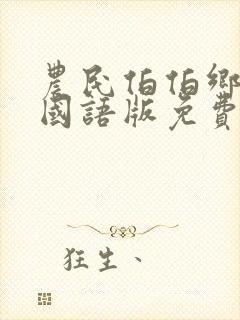 農民伯伯鄉
國語版免費
狂生、